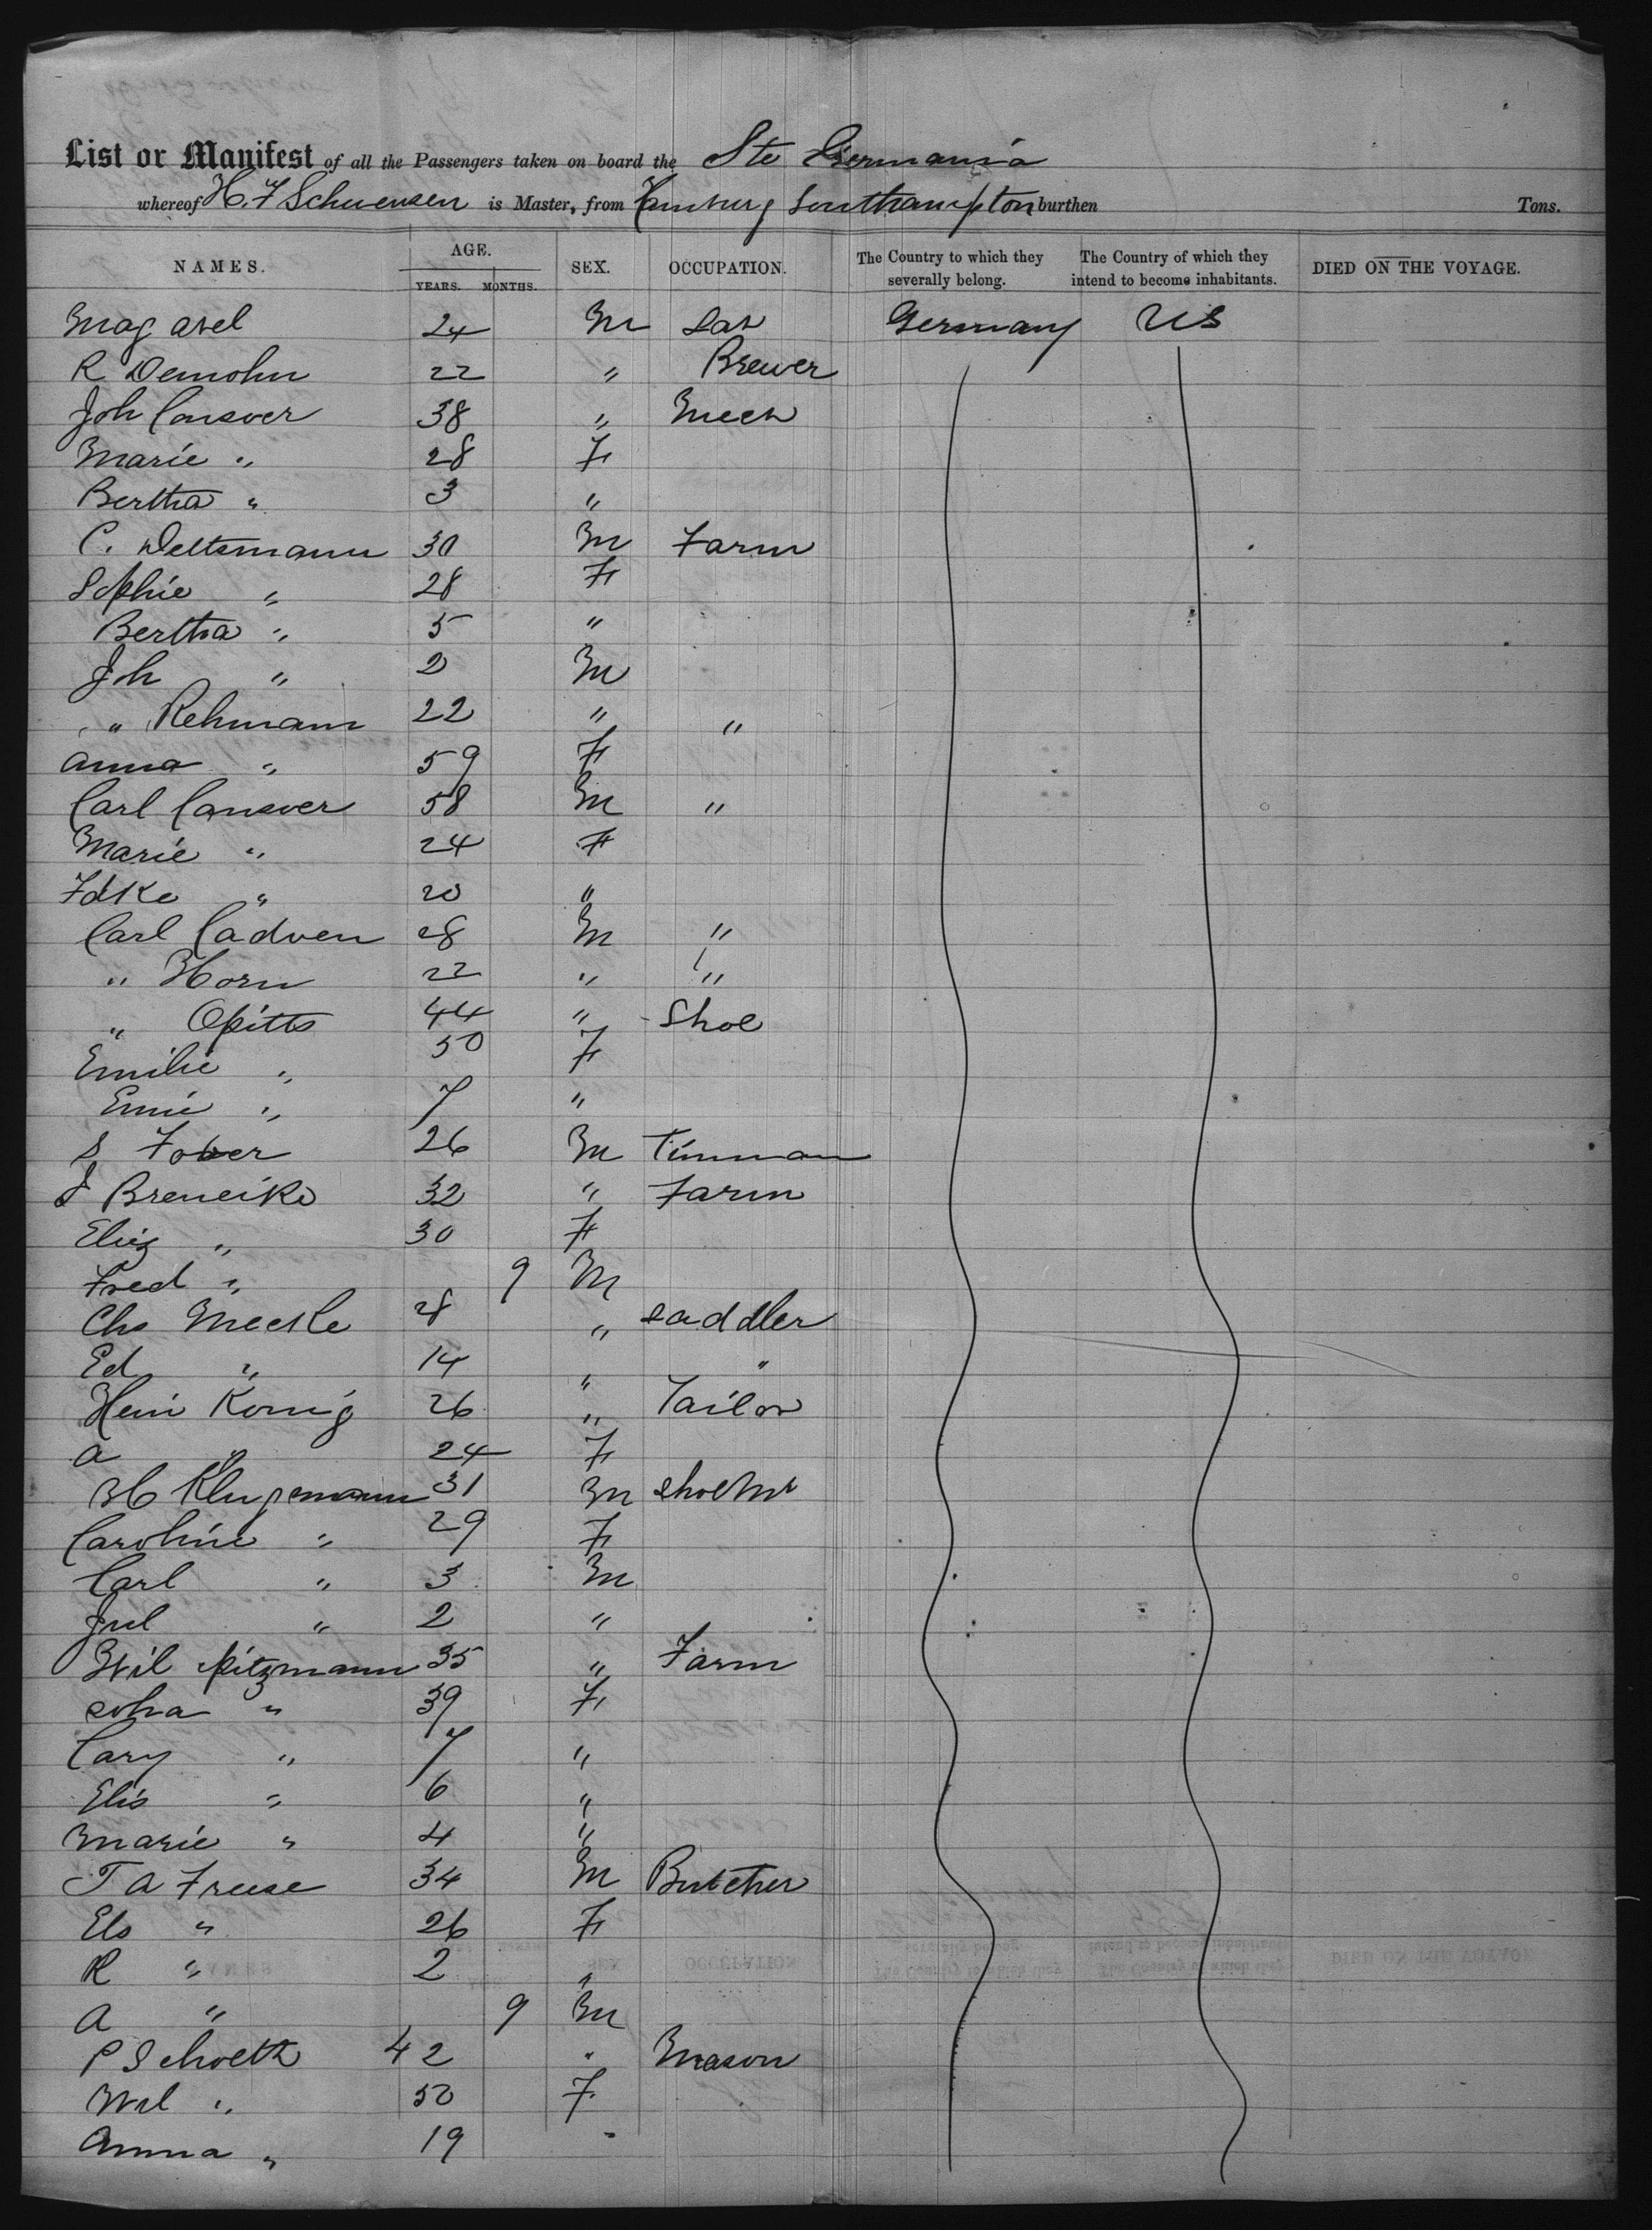 List or Manifest of all the Passengers taken on board the Ste Germania
whereof H. F Schwensen is Master, from Hamburg Southampton burthen Tons.
NAMES. AGE. YEARS. MONTHS. SEX. OCCUPATION. The Country to which they severally belong. The Country of which they intend to become inhabitants. DIED ON THE VOYAGE.
Mag Axel 24 M Lab Germany US
R Demohn 22 " Brewer
Joh Consver 38 " Mech
Marie " 28 F
Bertha " 3 "
C. Deltsmann 30 M Farm
Sophie " 28 F
Bertha " 5 "
Joh " 2 M
" Rehmann 22 " "
Anna " 59 F
Carl Consver 58 M "
Marie " 24 F
" 20 "
Carl Cadven 28 M "
" Horn 22 " "
" Opitts 44 " Shoe
Emilie " 50 F
Emie " 7 "
S Fober 26 M Tinman
J Breneike 32 " Farm
Eliz " 30 F
Fred " 9 M
Chs Meckle 28 " Saddler
Ed " 14 " "
Hein Konig 26 " Tailor
A " 24 F
Klugemann 31 M Shoemr
Caroline " 29 F
Carl " 3 M
Jul " 2 "
Wil Pitzmann 35 " Farm
" 39 F
Cary " 7 "
Elis " 6 "
Marie " 4 "
T A Freese 34 M Butcher
Els " 26 F
R " 2 "
A " 9 M
P Schoeth 42 " Mason
Wil " 50 F
Anna " 19 "